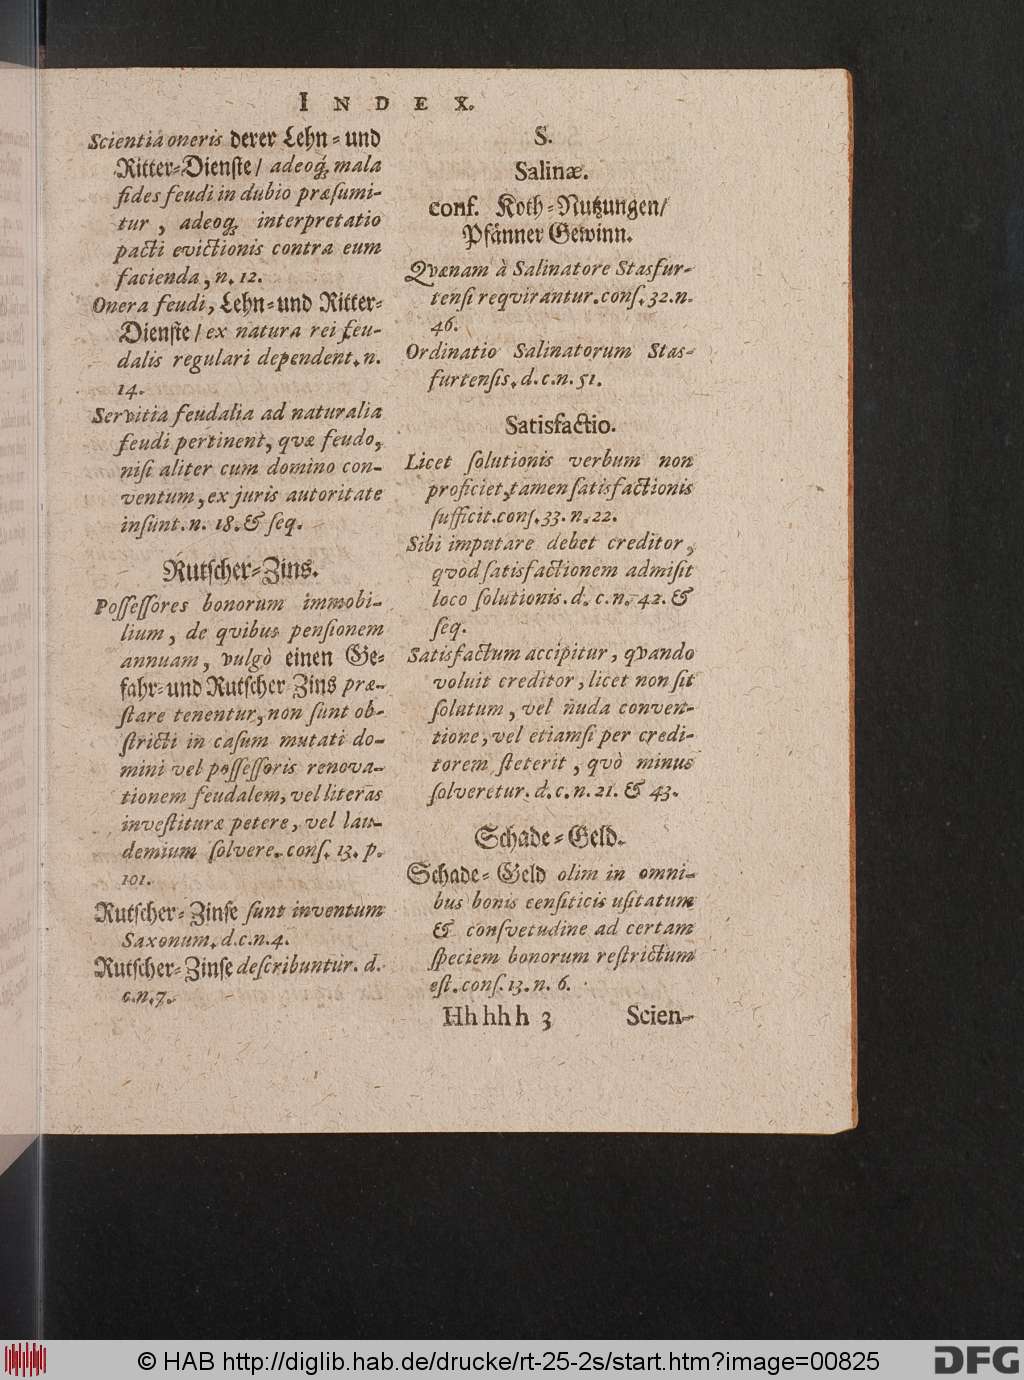 INDEX.
Scientia oneris derer Lehn- und
Ritter-Dienste/ adeoq́; mala
fides feudi in dubio præsumi-
tur, adeoq; interpretatio
pacti evictionis contra eum
facienda, n. 12.
Onera feudi, Lehn- und Ritter-
Dienste/ ex natura rei feu-
dalis regulari dependent. n.
14.
Servitia feudalia ad naturalia
feudi pertinent, qvæ feudo,
nisi aliter cum domino con-
ventum, ex juris autoritate
insunt. n. 18. & seq.
Rutscher-Zins.
Possessores bonorum immobi-
lium, de qvibus pensionem
annuam, vulgò einen Ge-
fahr- und Rutscher Zins præ-
stare tenentur, non sunt ob-
stricti in casum mutati do-
mini vel possessoris renova-
tionem feudalem, vel literas
investituræ petere, vel lau-
demium solvere. cons. 13. p.
101.
Rutscher-Zinse sunt inventum
Saxonum. d. c. n. 4.
Rutscher-Zinse describuntur. d.
c. n. 7.
S.
Salinæ.
conf. Koth-Nutzungen/
Pfänner Gewinn.
Qvænam à Salinatore Stasfur-
tensi reqvirantur. cons. 32. n.
46.
Ordinatio Salinatorum Stas-
furtensis. d. c. n. 51.
Satisfactio.
Licet solutionis verbum non
proficiet, tamen satisfactionis
sufficit. cons. 33. n. 22.
Sibi imputare debet creditor,
qvod satisfactionem admisit
loco solutionis. d. c. n. 42. &
seq.
Satisfactum accipitur, qvando
voluit creditor, licet non sit
solutum, vel nuda conven-
tione, vel etiamsi per credi-
torem steterit, qvò minus
solveretur. d. c. n. 21. & 43.
Schade-Geld.
Schade-Geld olim in omni-
bus bonis censiticis usitatum
& consvetudine ad certam
speciem bonorum restrictum
est. cons. 13. n. 6.
Hh hh h 3 Scien-
© HAB http://diglib.hab.de/drucke/rt-25-2s/start.htm?image=00825
DFG